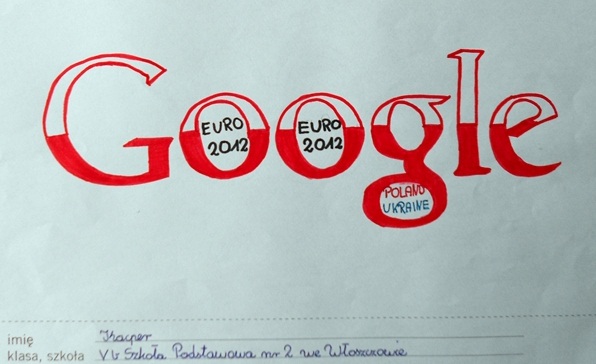 Google
EURO
2012
EURO
2012
POLAND
UKRAINE
imię Kacper
klasa, szkoła V b Szkoła Podstawowa nr 2 we Włoszczowie